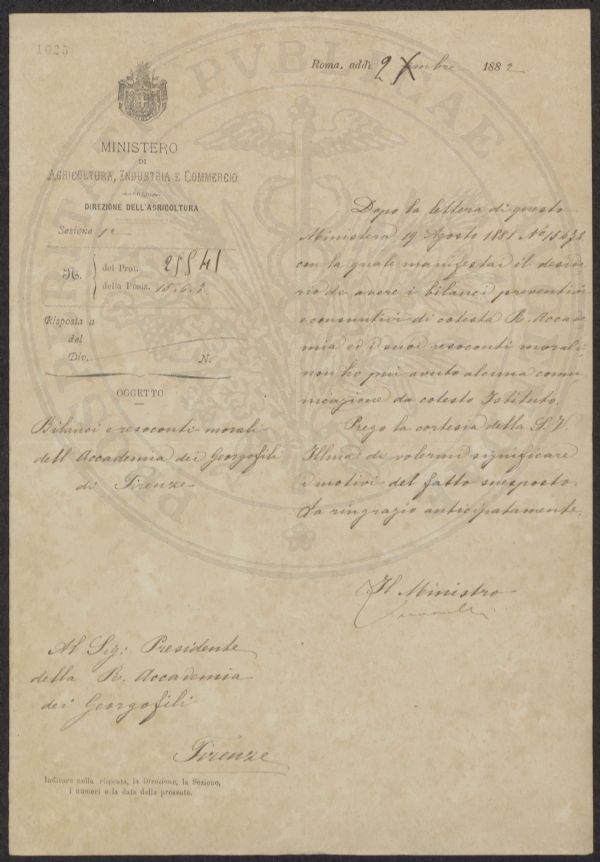 1025
Roma, addì 9 Xmbre 1882
MINISTERO
DI
AGRICOLTURA, INDUSTRIA E COMMERCIO
DIREZIONE DELL'AGRICOLTURA
Sezione 1ª
N. del Prot. 25541
della Posiz. 15.6.2.
Risposta a
del
Div. N.
OGGETTO
Bilanci e resoconti morali
dell'Accademia dei Georgofili
di Firenze
Dopo la lettera di questo
Ministero 19 Agosto 1881 Nº
con la quale manifestai il deside
rio de avere i bilanci preventivi
e consuntivi di cotesta R. Accade
mia ed i suoi resoconti morali,
non ho più avuto alcuna comu
nicazione da cotesto Istituto.
Prego la cortesia della S. V.
Illma di volermi significare
i motivi del fatto suesposto.
La ringrazio anticipatamente.
Il Ministro
Al Sig: Presidente
della R. Accademia
dei Georgofili
Firenze
Indicare nella risposta, la Direzione, la Sezione,
i numeri e la data della presente.